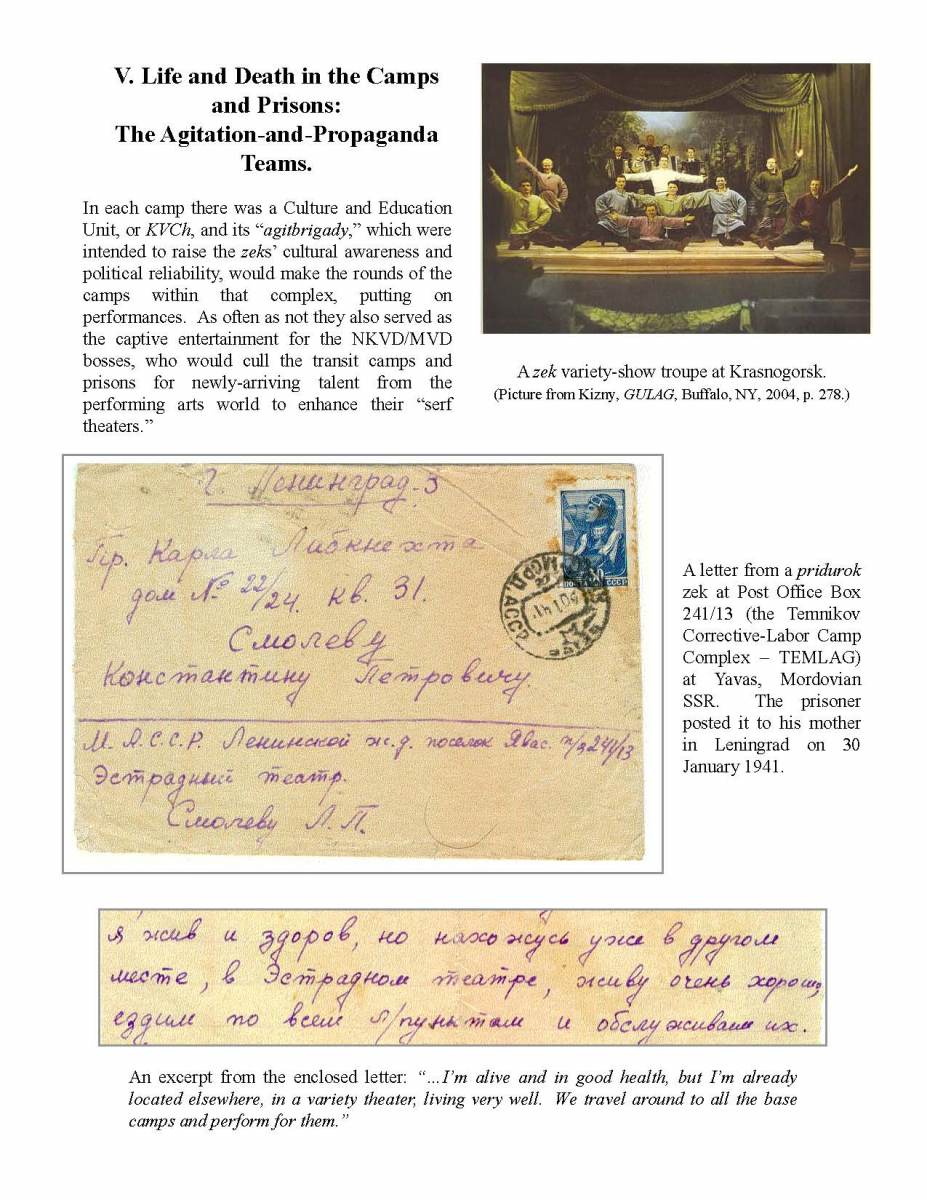 V. Life and Death in the Camps
and Prisons:
The Agitation-and-Propaganda
Teams.
In each camp there was a Culture and Education
Unit, or KVCh, and its “agitbrigady,” which were
intended to raise the zeks’ cultural awareness and
political reliability, would make the rounds of the
camps within that complex, putting on
performances. As often as not they also served as
the captive entertainment for the NKVD/MVD
bosses, who would cull the transit camps and
prisons for newly-arriving talent from the
performing arts world to enhance their “serf
theaters.”
A zek variety-show troupe at Krasnogorsk.
(Picture from Kizny, GULAG, Buffalo, NY, 2004, p. 278.)
г. Ленинград-3
Пр. Карла Либкнехта
дом № 22/24. кв. 31.
Смолеву
Константину Петровичу.
М.А.С.С.Р. Ленинской ж.д. поселок Явас. п/я 241/13
Эстрадный театр.
Смолеву Л.П.
A letter from a pridurok
zek at Post Office Box
241/13 (the Temnikov
Corrective-Labor Camp
Complex – TEMLAG)
at Yavas, Mordovian
SSR. The prisoner
posted it to his mother
in Leningrad on 30
January 1941.
я жив и здоров, но нахожусь уже в другом
месте, в Эстрадном театре, живу очень хорошо,
ездим по всем л/пунктам и обслуживаем их.
An excerpt from the enclosed letter: “…I’m alive and in good health, but I’m already
located elsewhere, in a variety theater, living very well. We travel around to all the base
camps and perform for them.”